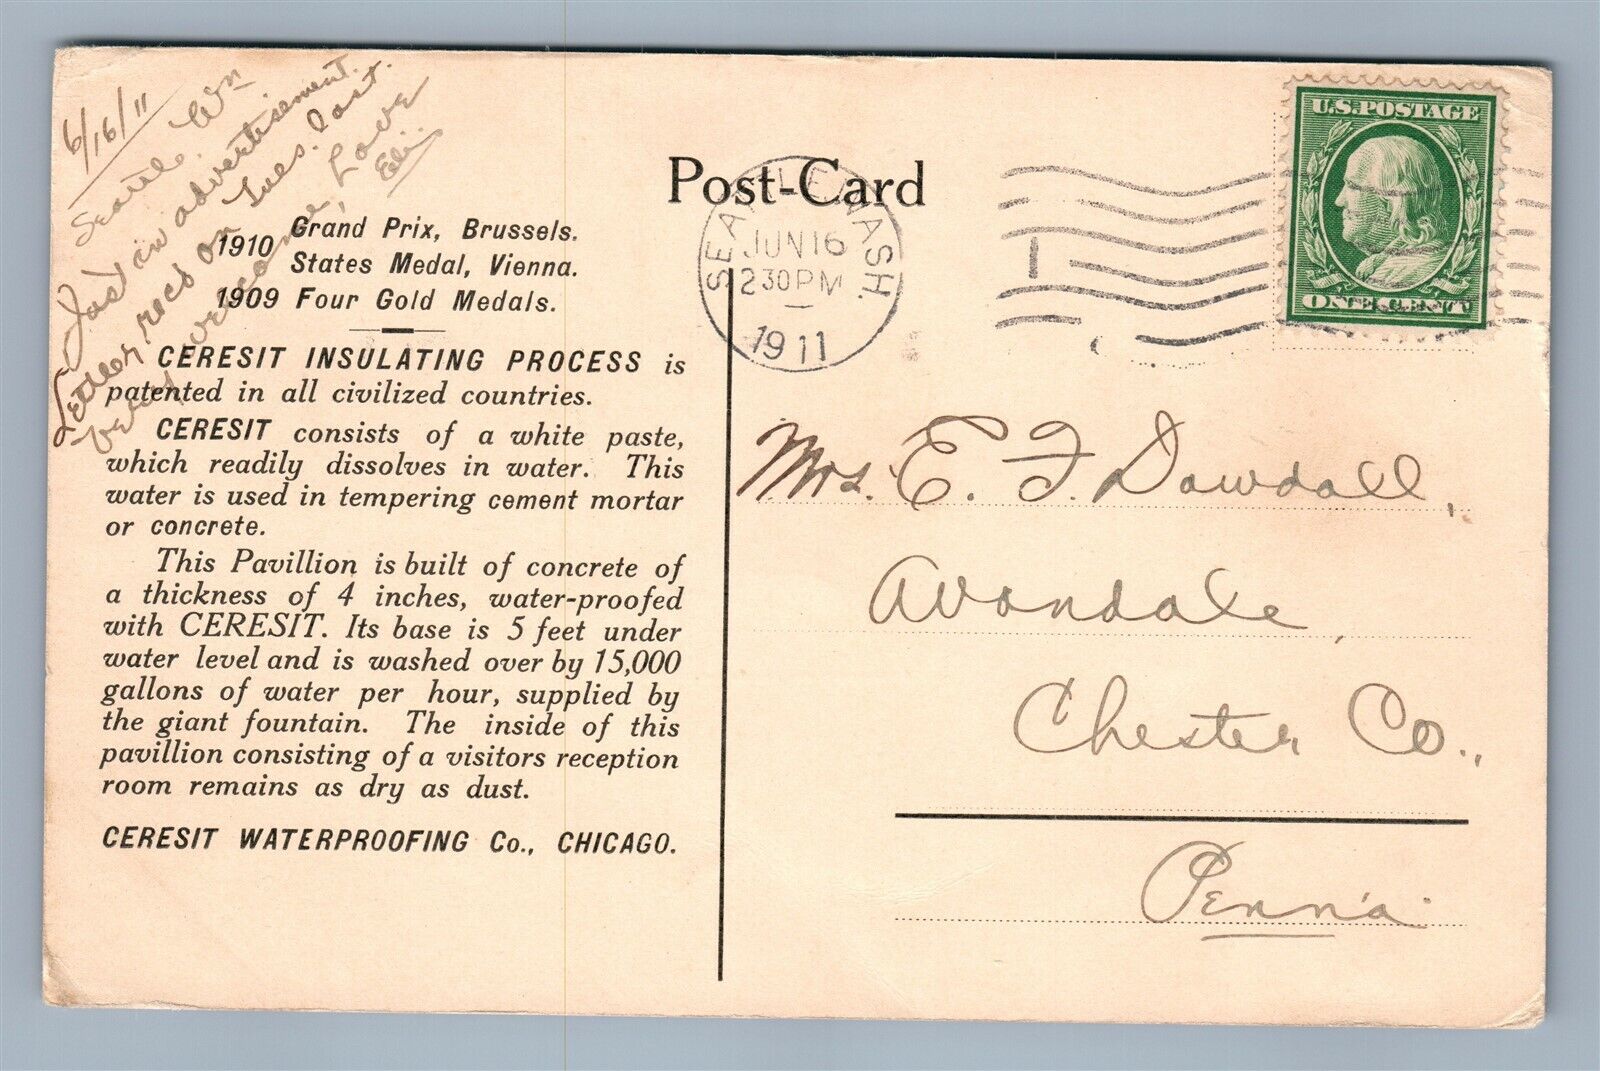 6/16/11
Seattle, Wn
Just an advertisement.
Letter recd on Tues. last.
very welcome, Love
Eli
Post-Card
SEATTLE, WASH.
JUN 16
2 30 PM
1911
1
U.S. POSTAGE
ONE CENT
1910 Grand Prix, Brussels.
States Medal, Vienna.
1909 Four Gold Medals.
CERESIT INSULATING PROCESS is
patented in all civilized countries.
CERESIT consists of a white paste,
which readily dissolves in water. This
water is used in tempering cement mortar
or concrete.
This Pavillion is built of concrete of
a thickness of 4 inches, water-proofed
with CERESIT. Its base is 5 feet under
water level and is washed over by 15,000
gallons of water per hour, supplied by
the giant fountain. The inside of this
pavillion consisting of a visitors reception
room remains as dry as dust.
CERESIT WATERPROOFING Co., CHICAGO.
Mrs. E. F. Dowdall,
Avondale,
Chester Co.,
Penn'a.